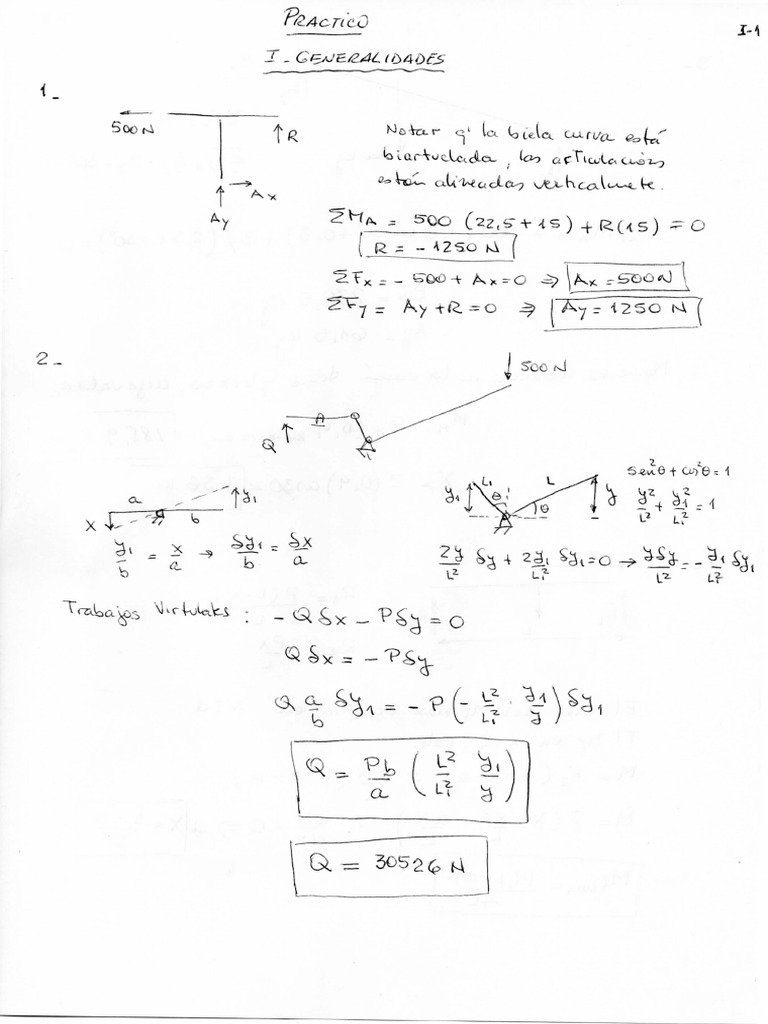 PRACTICO
I-1
I - GENERALIDADES
1 -
500 N
R
Ax
Ay
Notar q' la biela curva está
biartuclada, las articulacións
están alineadas verticalmete.
ΣMA = 500 (22,5 + 15) + R(15) = 0
R = - 1250 N
ΣFx = - 500 + Ax = 0 ⇒ Ax = 500 N
ΣFy = Ay + R = 0 ⇒ Ay = 1250 N
2 -
500 N
A
Q
a
b
y1
x
y1/b = x/a → δy1/b = δx/a
y1
L1
θ
L
θ
y
sen²θ + cos²θ = 1
y²/L² + y1²/L1² = 1
2y/L² δy + 2y1/L1² δy1 = 0 → yδy/L² = - y1/L1² δy1
Trabajos Virtulaks : - Q δx - P δy = 0
Q δx = - P δy
Q a/b δy1 = - P (- L²/L1² · y1/y) δy1
Q = Pb/a (L²/L1² y1/y)
Q = 30526 N